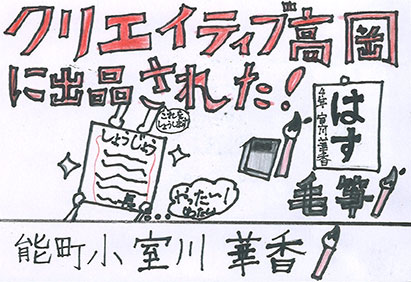 クリエイティブ高岡
に出品された!
これを
しょうします
しょうじょう
やったー!
はす
4年 室川華香
毛筆
能町小 室川 華香